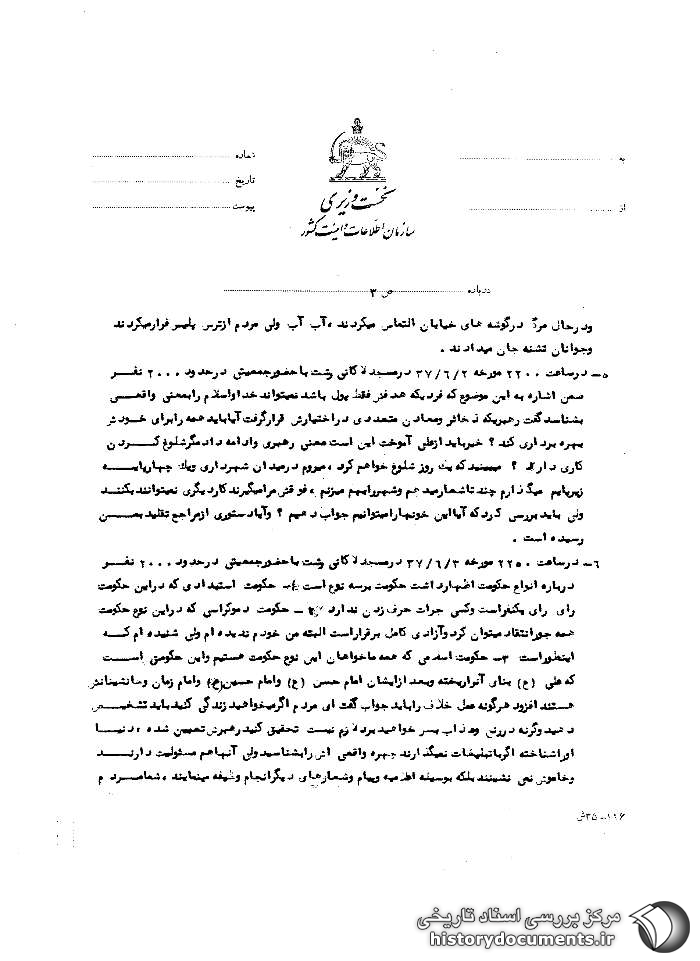 به
از
شماره
تاریخ
پیوست
نخست وزیری
سازمان اطلاعات و امنیت کشور
درباره ص ۳
ودرحال مرگ درگوشه های خیابان التماس میکردند ،آب آب ولی مردم ازترس پلیس فرارمیکردند
وجوانان تشنه جان میدادند .
۵ـ درساعت ۲۲۰۰ مورخه ۳۷/۶/۲ درمسجد لاکانی رشت باحضورجمعیتی درحدود ۲۰۰۰ نفر
ضمن اشاره به این موضوع که فردیکه هدفش فقط پول باشد نمیتواند خداواسلام رابمعنی واقعی
بشناسد گفت رهبریکه ذخائر ومعادن متعددی دراختیارش قرارگرفت آیاباید همه رابرای خودش
بهره برداری کند ؟ خیرباید ازعلی آموخت این است معنی رهبری وادامه دادمگرشلوغ کردن
کاری دارد ؟ میبینید که یک روز شلوغ خواهم کرد ، میروم درمیدان شهرداری ویک چهارپایه
زیرپایم میگذارم چند تاشعارمیدهم وشهررابهم میزنم ، فوقش مرامیگیرند کاردیگری نمیتوانند بکنند
ولی باید بررسی کردکه آیااین خونهارامیتوانیم جواب دهیم ؟ وآیادستوری ازمراجع تقلید بمن
رسیده است .
۶ـ درساعت ۲۲۵۰ مورخه ۳۷/۶/۳ درمسجد لاکانی رشت باحضورجمعیتی درحدود ۲۰۰۰ نفر
درباره انواع حکومت اظهارداشت حکومت برسه نوع است ۱ـ حکومت استبدادی که دراین حکومت
رای رای یکنفراست وکسی جرات حرف زدن ندارد ۲ـ حکومت دموکراسی که دراین نوع حکومت
همه جورانتقاد میتوان کردوآزادی کامل برقراراست البته من خودم ندیده ام ولی شنیده ام که
اینطوراست ۳ـ حکومت اسلامی که همه ماخواهان این نوع حکومت هستیم واین حکومتی است
که علی (ع) بنای آنراریخته وبعد ازایشان امام حسن (ع) وامام حسین(ع) وامام زمان وجانشینانش
هستند افزود هرگونه عمل خلاف راباید جواب گفت ای مردم اگرمیخواهید زندگی کنید باید تشخیص
دهید وگرنه دررنج وعذاب بسر خواهید برد لازم نیست تحقیق کنید رهبرش تعیین شده ، دنیا
اوراشناخته اگرباتبلیغات نمیگذارند چهره واقعی اش رابشناسید ولی آنهاهم مسئولیت دارند
وخاموش نمی نشینند بلکه بوسیله اعلامیه وپیام وشعارهای دیگرانجام وظیفه مینمایند ، شعامردم
۳۵-۱۱۶ش
مرکز بررسی اسناد تاریخی
historydocuments.ir